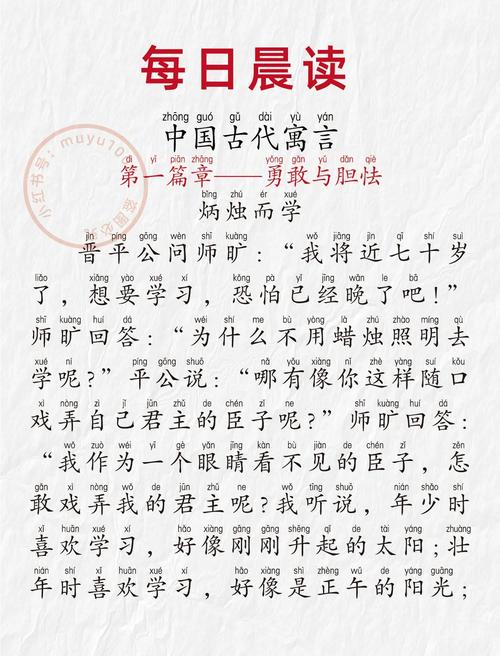 每日晨读
zhōng guó gǔ dài yù yán
中国古代寓言
dì yī piān zhāng yǒng gǎn yǔ dǎn qiè
第一篇章——勇敢与胆怯
bǐng zhú ér xué
炳烛而学
jìn píng gōng wèn shī kuàng wǒ jiāng jìn qī shí suì
晋平公问师旷：“我将近七十岁
liǎo xiǎng yào xué xí kǒng pà yǐ jīng wǎn le bā
了，想要学习，恐怕已经晚了吧！”
shī kuàng huí dá wéi shí me bù yòng là zhú zhào míng qù
师旷回答：“为什么不用蜡烛照明去
xué ní píng gōng shuō nǎ yǒu xiàng nǐ zhè yàng suí kǒu
学呢？”平公说：“哪有像你这样随口
xì nòng zì jǐ jūn zhǔ de chén zǐ ne shī kuàng huí dá
戏弄自己君主的臣子呢？”师旷回答：
wǒ zuò wéi yī gè yǎn jīng kàn bù jiàn de chén zǐ zěn
“我作为一个眼睛看不见的臣子，怎
gǎn xì nòng wǒ de jūn zhǔ ne wǒ tīng shuō nián shào shí
敢戏弄我的君主呢？我听说，年少时
xǐ huān xué xí hǎo xiàng gāng gāng shēng qǐ de tài yáng zhuàng
喜欢学习，好像刚刚升起的太阳；壮
nián shí xǐ huān xué xí hǎo xiàng shì zhèng wǔ de yáng guāng
年时喜欢学习，好像是正午的阳光；
小红书号：muyu100